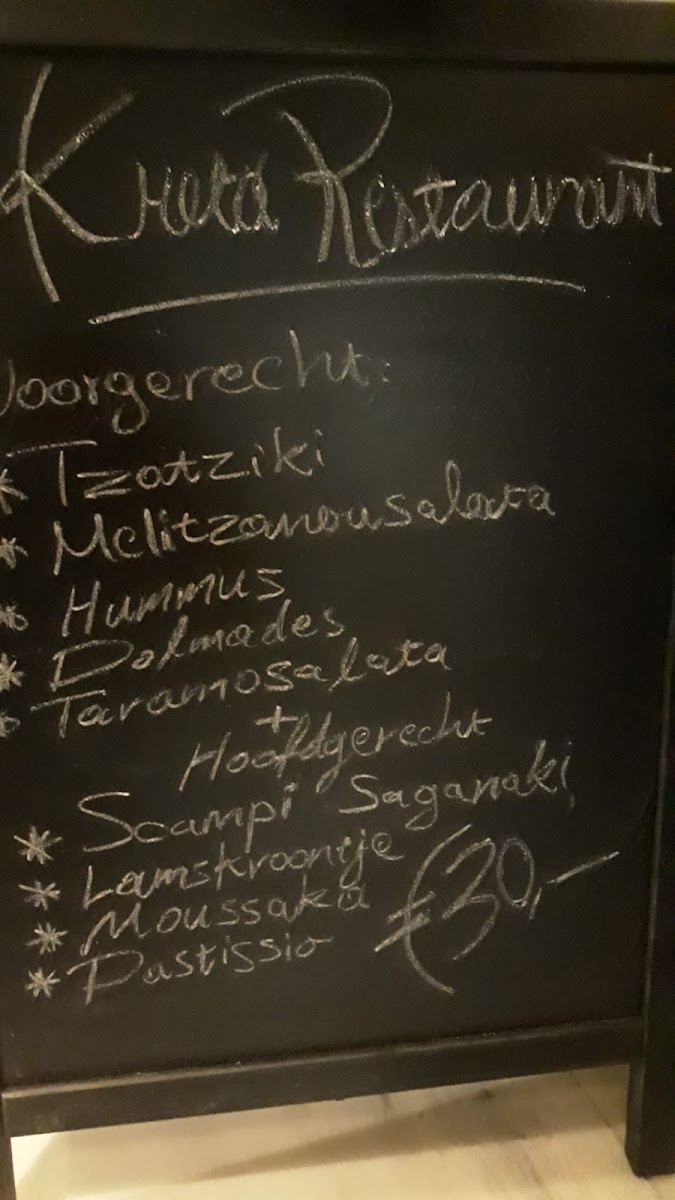 Kreta Restaurant
Voorgerecht:
* Tzatziki
* Melitzanousalata
* Hummus
* Dolmades
* Taramosalata
+
Hoofdgerecht
* Scampi Saganaki
* Lamskroontje
* Moussaka
* Pastissio
€30,-